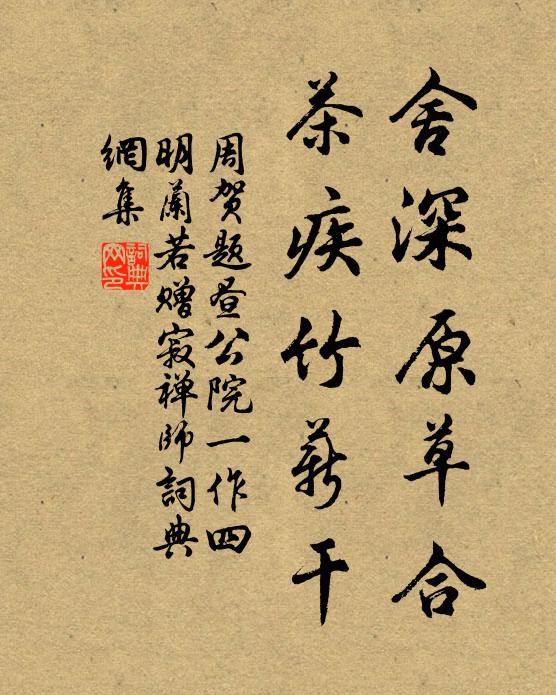 舍深原草合
茶疾竹薪干
周贺题昼公院一作四
明兰若赠寂禅师词典
网集
词典网印